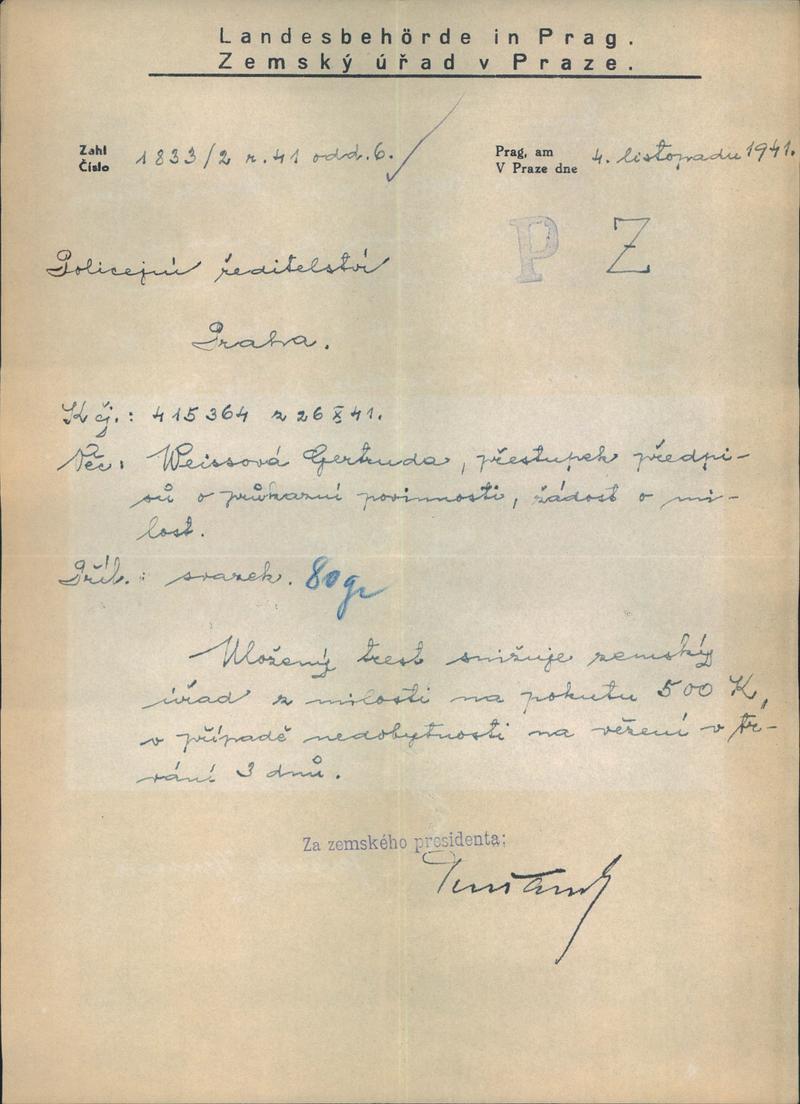 Landesbehörde in Prag.
Zemský úřad v Praze.
Zahl
Číslo
1833/2 r. 41 odd. 6.
Prag, am
V Praze dne
4. listopadu 1941.
P Z
Policejní ředitelství
Praha.
K čj.: 415364 z 26 X 41.
Věc: Weissová Gertruda, přestupek předpi-
sů o průkazní povinnosti, žádost o mi-
lost.
Příl.: svazek. 80gr
Uložený trest snižuje zemský
úřad z milosti na pokutu 500 K,
v případě nedobytnosti na vězení v tr-
vání 3 dnů.
Za zemského presidenta: